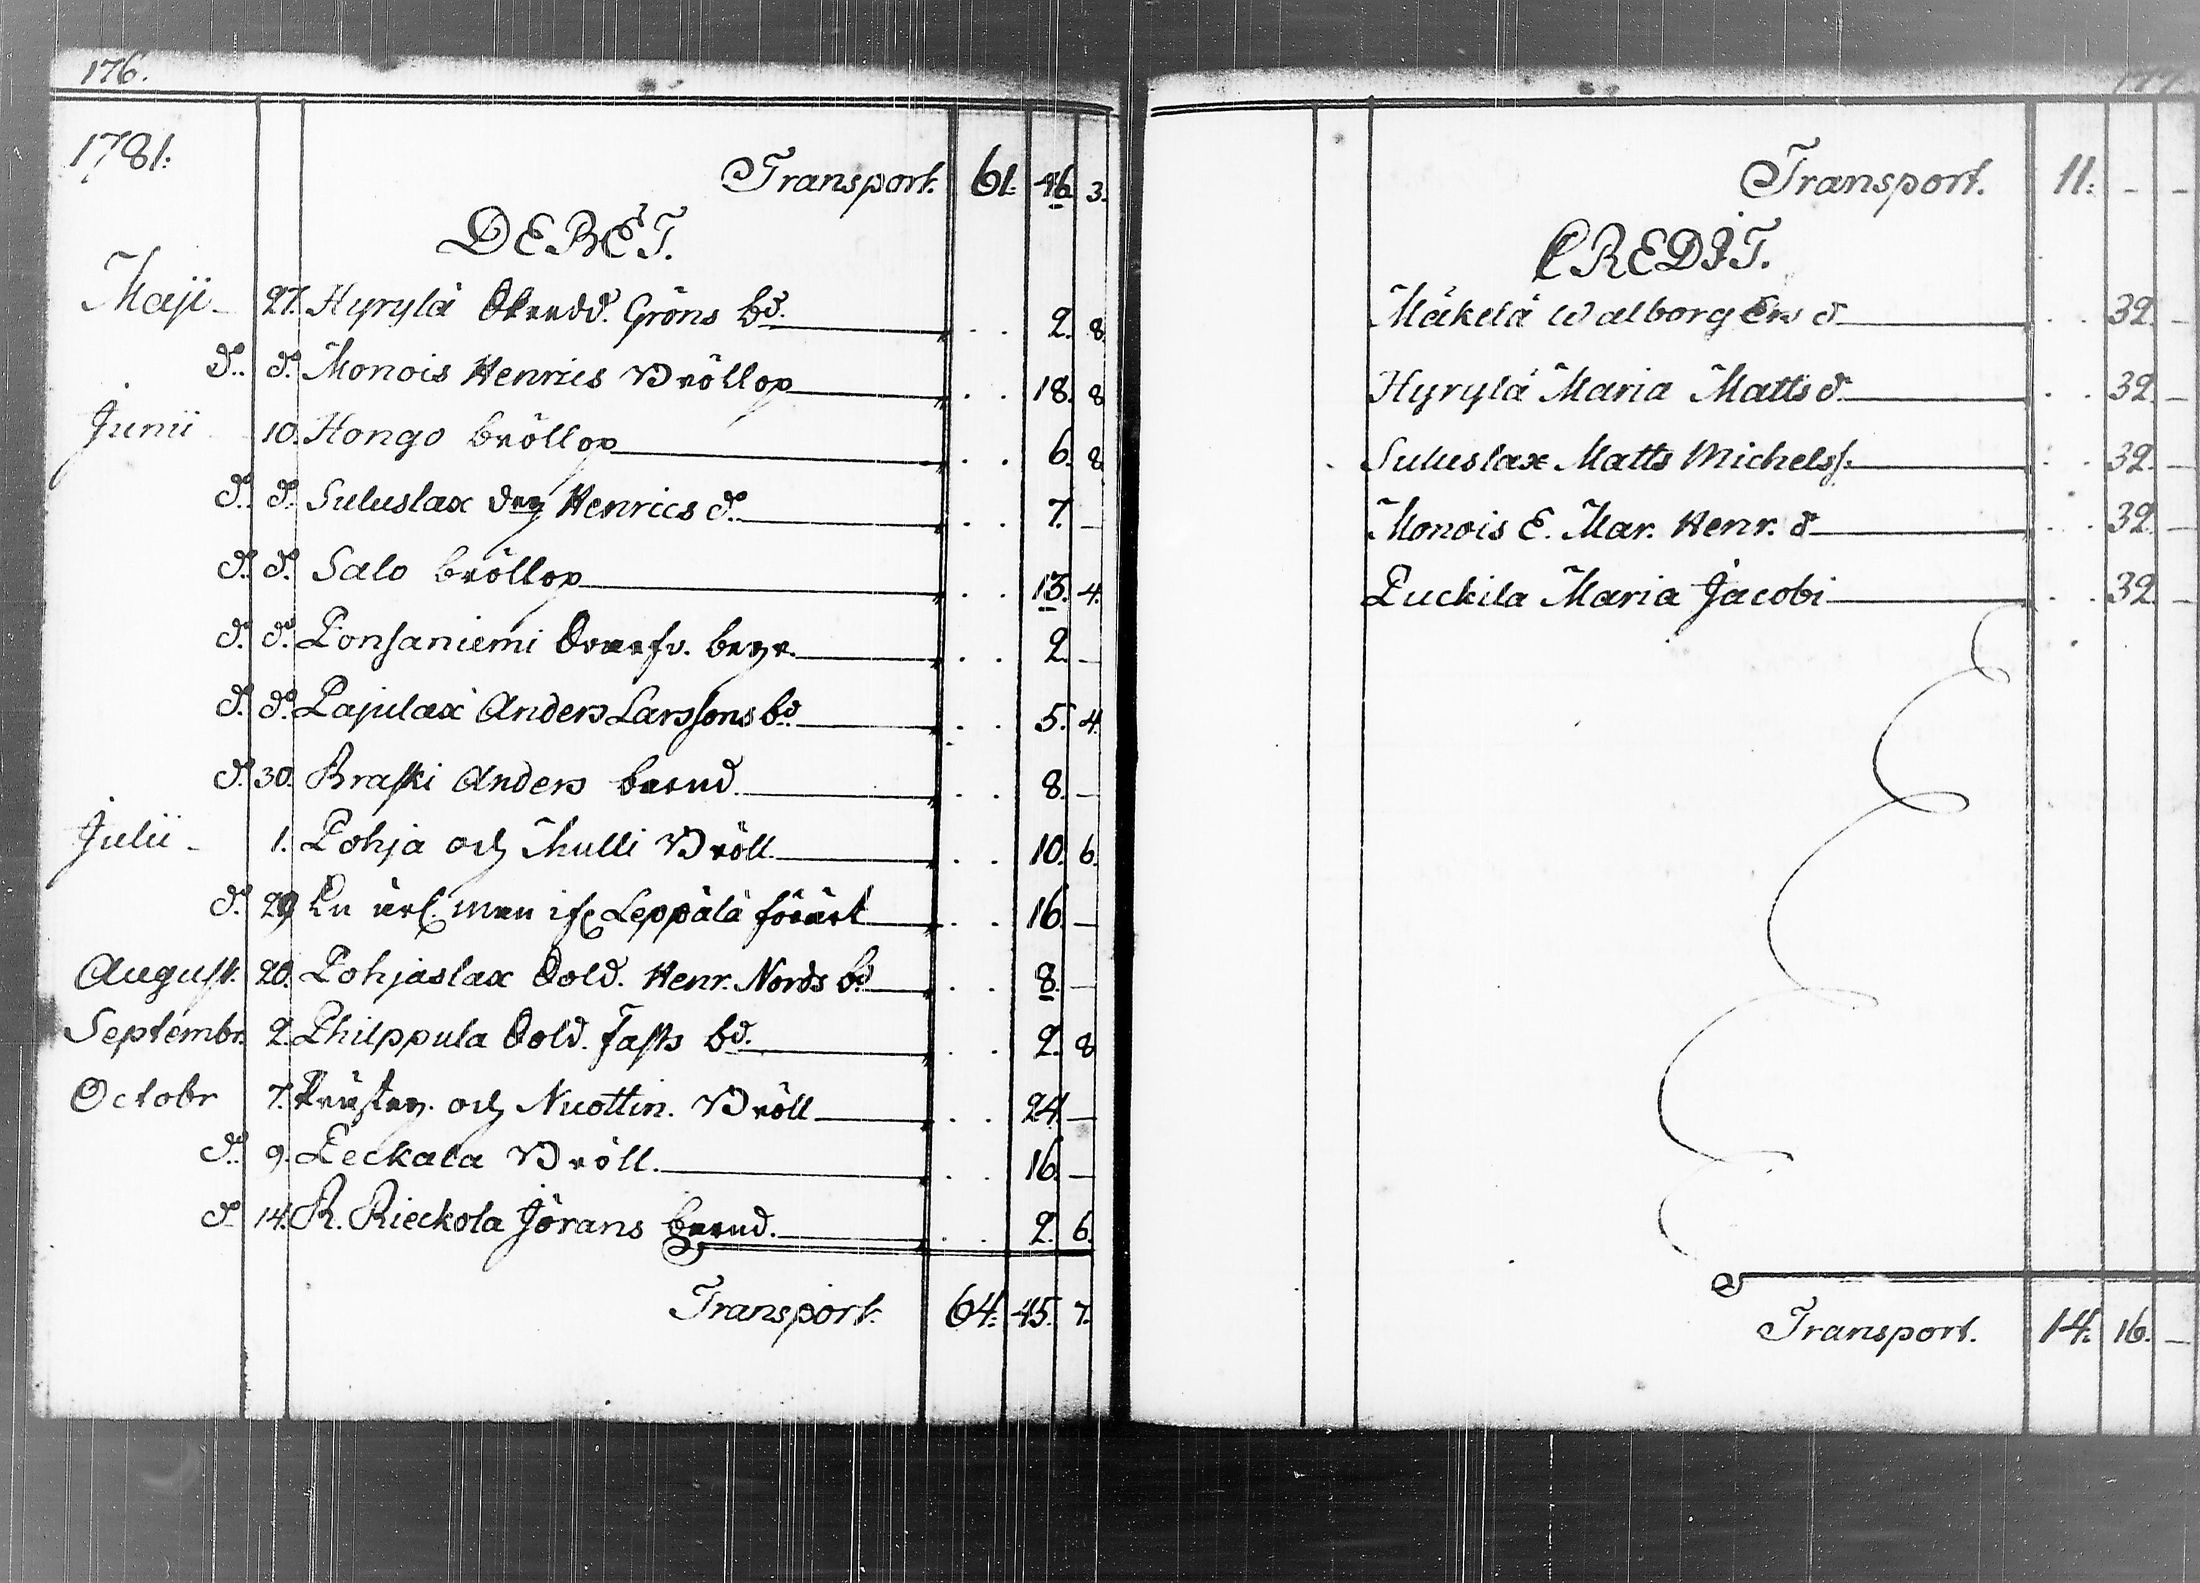 176.
1781.
Transport. 61. 46. 3.
DEBET.
Maji 27. Hyrylä Gröns bd. 2. 8.
do. do. Monois Henrics Bröllop 18. 8
Junii 10. Hongo bröllop 6. 8
do. do. Suluslax Henrics d. 7. —
do. do. Salo bröllop 13. 4.
do. do. Ponsaniemi 2. —
do. do. Pajulax Anders Larssons bd 5. 4.
do. 30. Braski Anders barnd. 8. —
Julii 1. Pohja och Mulli Bröll. 10. 6.
do. 29 En ärl. man if Leppälä förärt 16 —
August. 20. Pohjaslax Sold. Henr. Nords bd 8. —
Septembr. 2. Philppula Sold. Fasts bd. 2. 8
Octobr 7. och Nuottin. Bröll 24. —
do. 9. Peckala Bröll. 16. —
do 14. R. Rieckola Jörans barnd. 2. 6.
Transport. 64. 45. 7.
177
Transport. 11. - -
CREDIT.
Mäkelä Walborg Ers d 32. —
Hyrylä Maria Matts d. 32 —
Suluslax Matts Michelss. 32 —
Monois E. Mar. Henr. d 32 —
Puckila Maria Jacobi 32 —
Transport. 14. 16. —